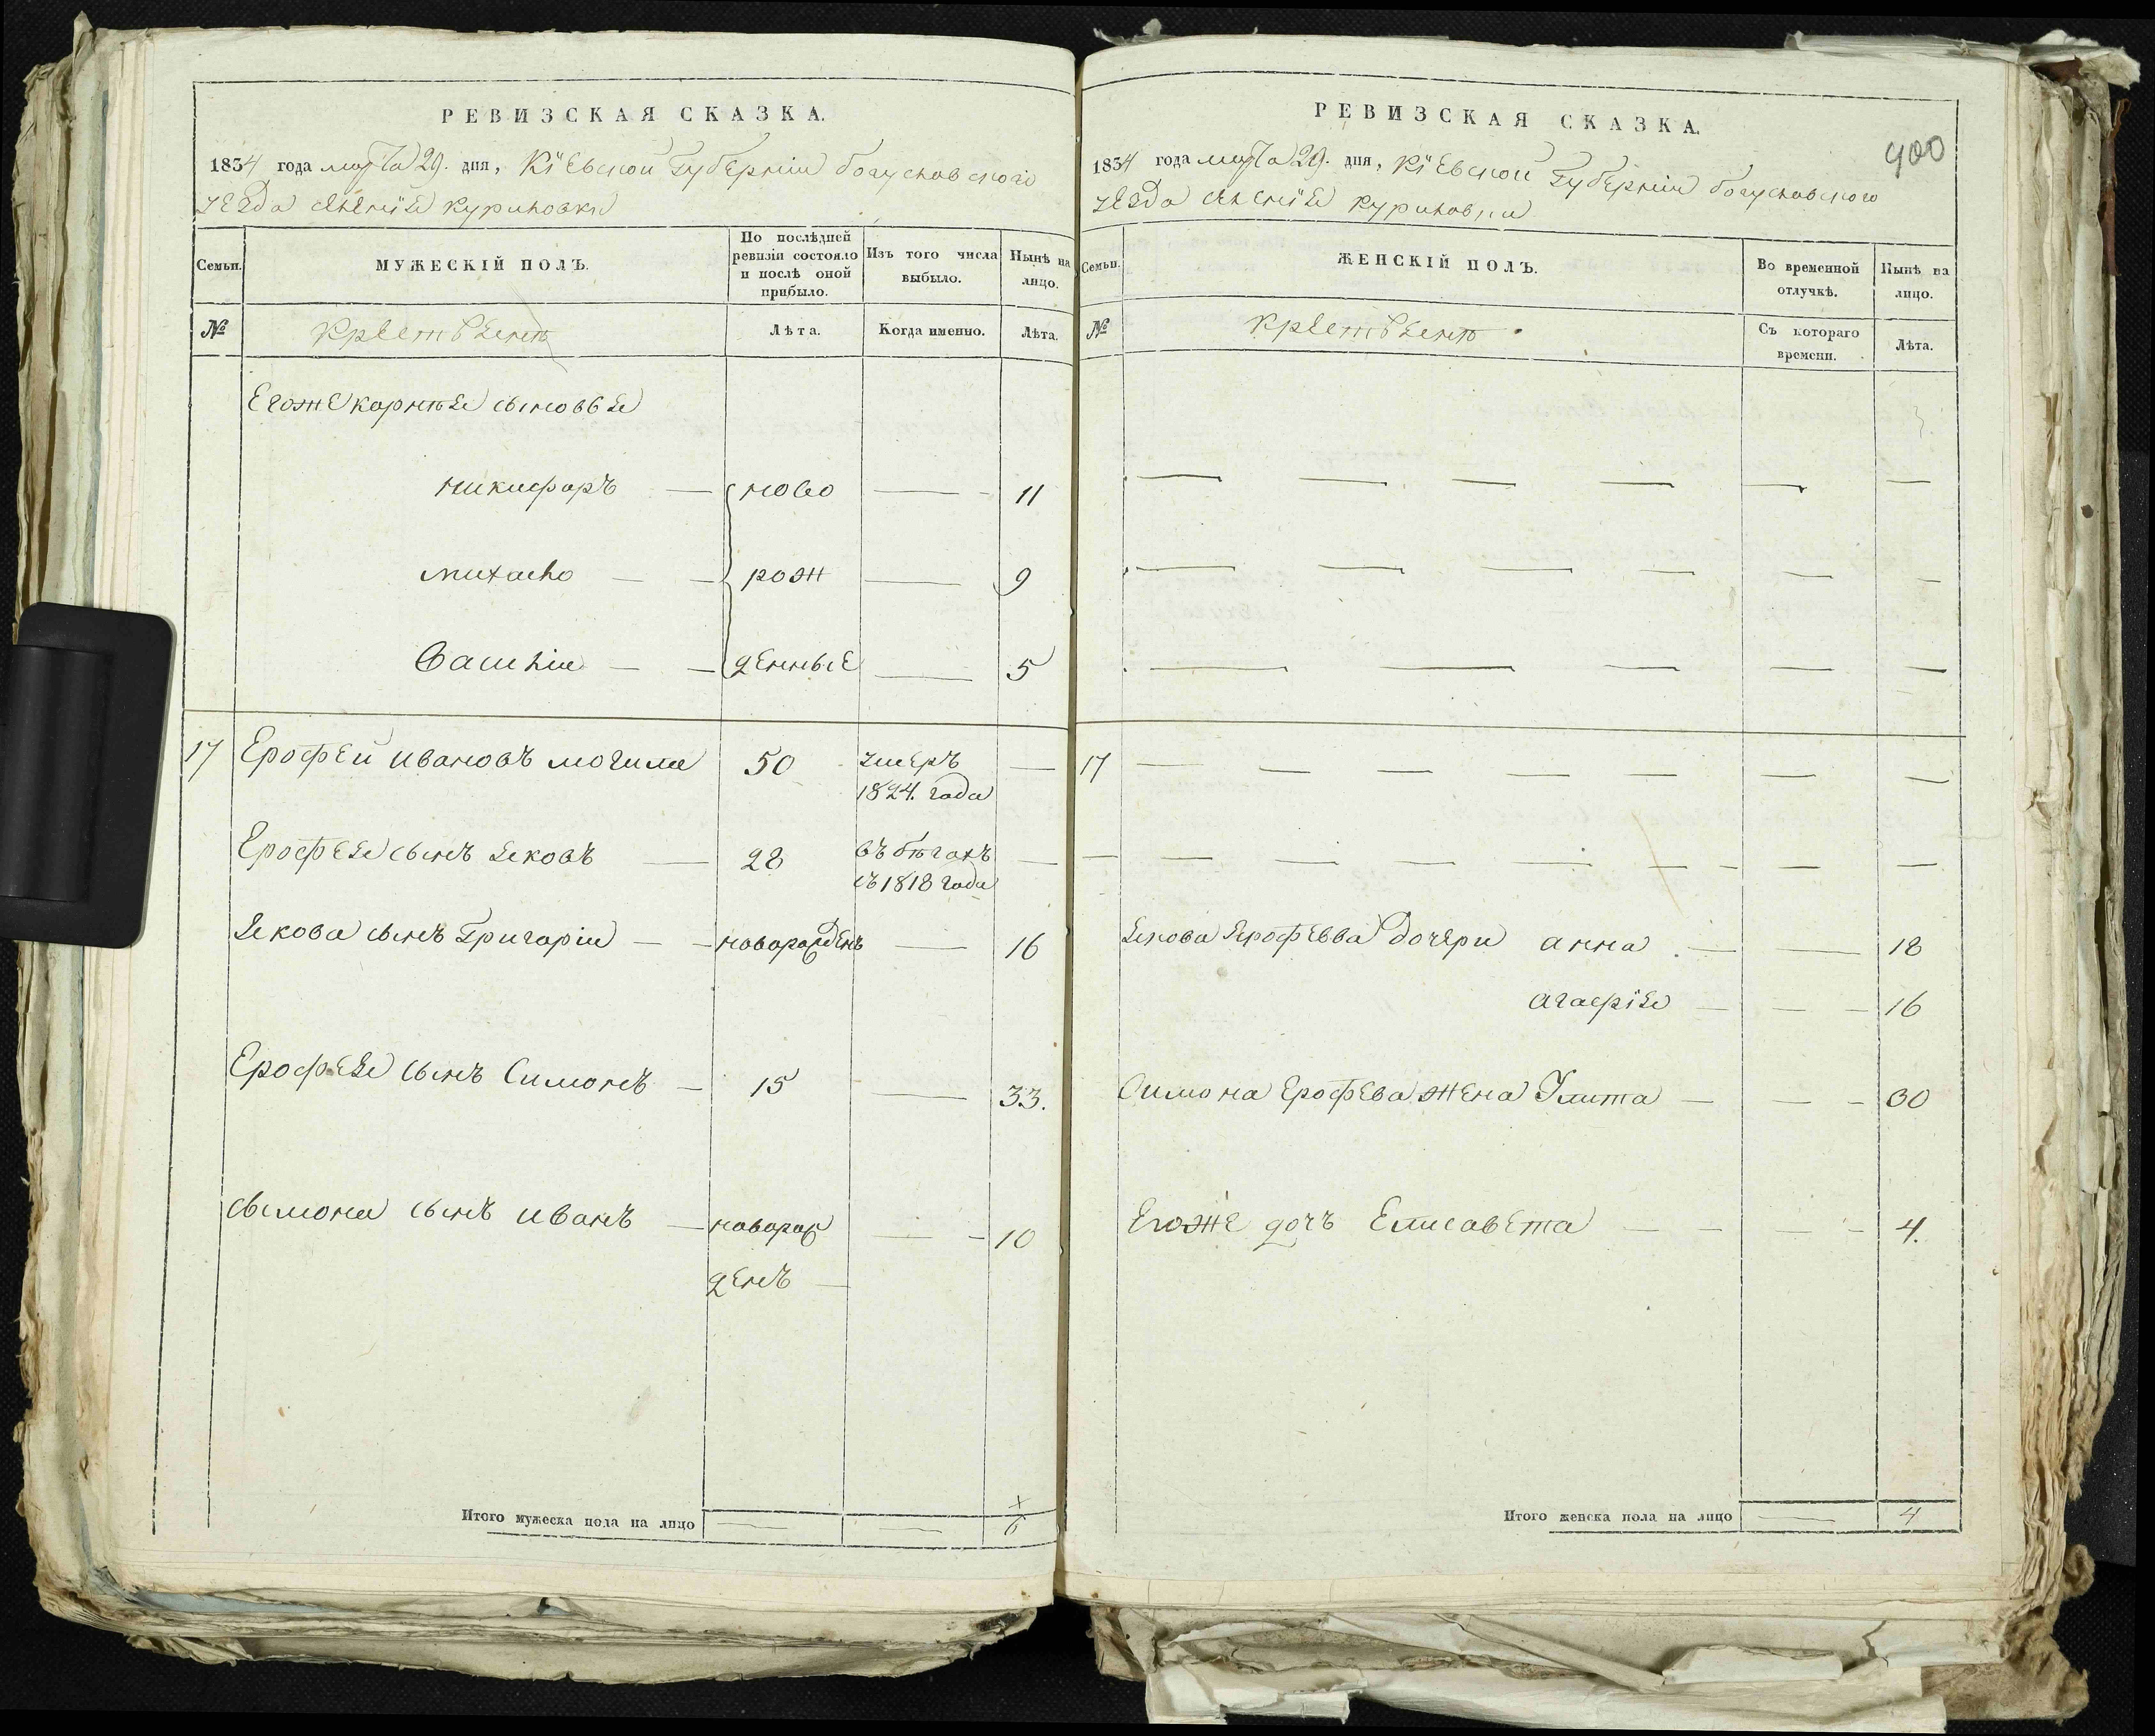 РЕВИЗСКАЯ СКАЗКА.
1834 года марта 29. дня, Кіевской губерніи богуславского
уезда селенія Куриловки
Семьи.
МУЖЕСКІЙ ПОЛЪ.
По послѣдней ревизіи состояло и послѣ оной прибыло.
Изъ того числа выбыло.
Нынѣ на лицо.
№
Крестьяне
Лѣта.
Когда именно.
Лѣта.
Егоже корнѣя сыновья
никифоръ — ново — 11
михайло — рож — 9
Василіи — денные — 5
17 Ерофей ивановъ могила 50 умеръ —
1824. года
Ерофея сынъ яковъ — 28 въ бѣгахъ —
съ 1818 года
Якова сынъ Григоріи — новорожденъ — 16
Ерофея сынъ Симонъ — 15 — 33.
сымона сынъ иванъ — новорож — 10
денъ —
Итого мужеска пола на лицо — — 6
РЕВИЗСКАЯ СКАЗКА.
400
1834 года марта 29. дня, Кіевской губерніи богуславского
уезда селенія Куриловки
Семьи.
ЖЕНСКІЙ ПОЛЪ.
Во временной отлучкѣ.
Нынѣ на лицо.
№
Крестьяне
Съ котораго времени.
Лѣта.
17
Якова Ярофева дочери анна — — 18
агафія — — 16
Симона Ерофева жена Улита — — 30
Егоже дочъ Елисавета — — 4.
Итого женска пола на лицо — 4